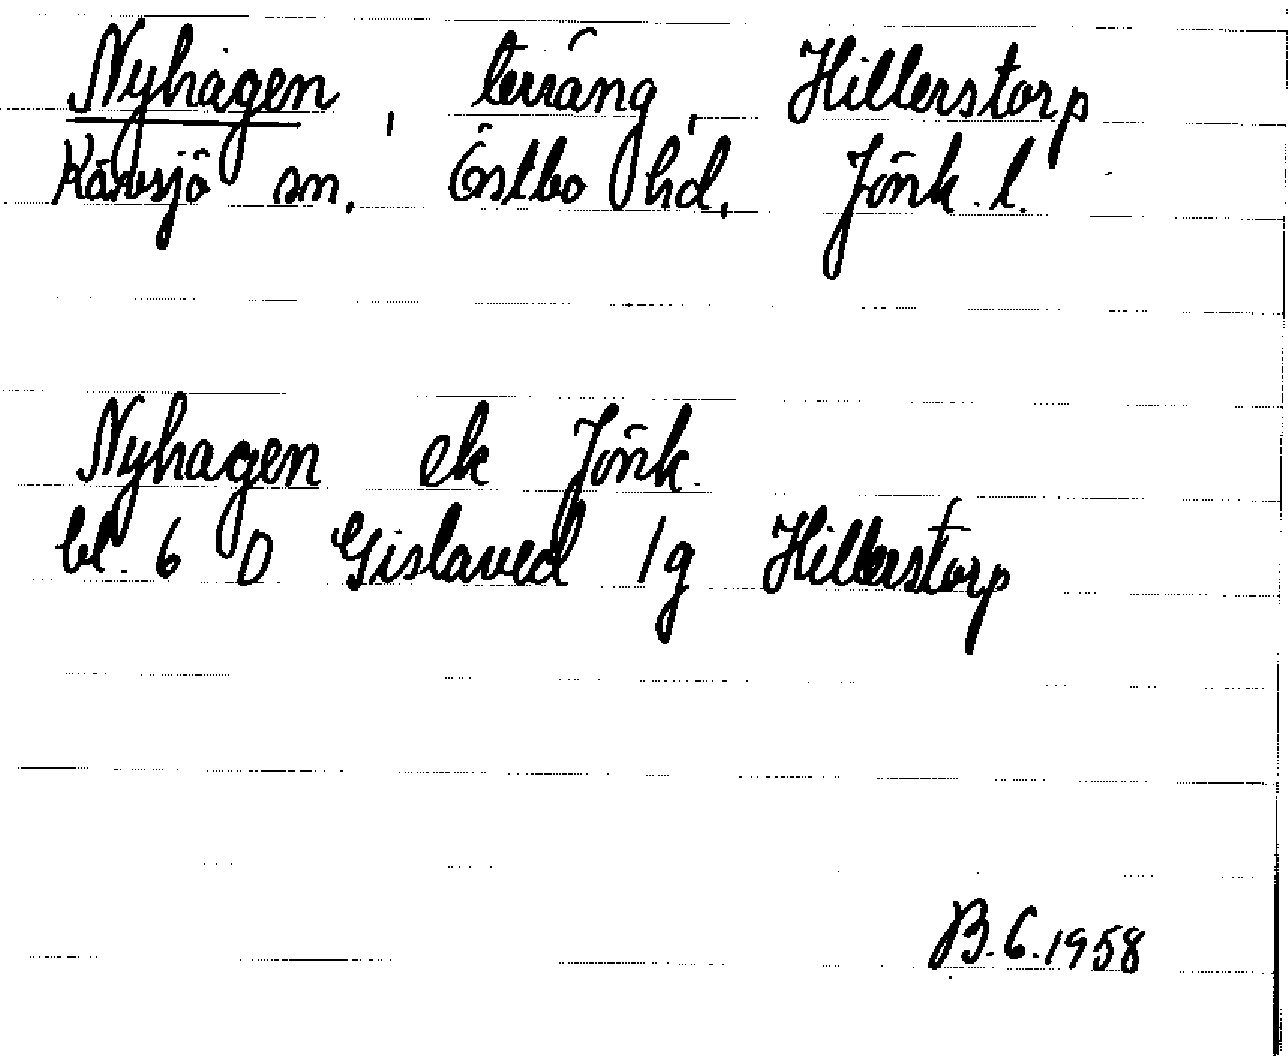 Nyhagen, terräng, Hillerstorp
Kävsjö sn. Östbo hd. Jönk. l.
Nyhagen ek Jönk.
bl. 6 D Gislaved 1g Hillerstorp
B.G.1958